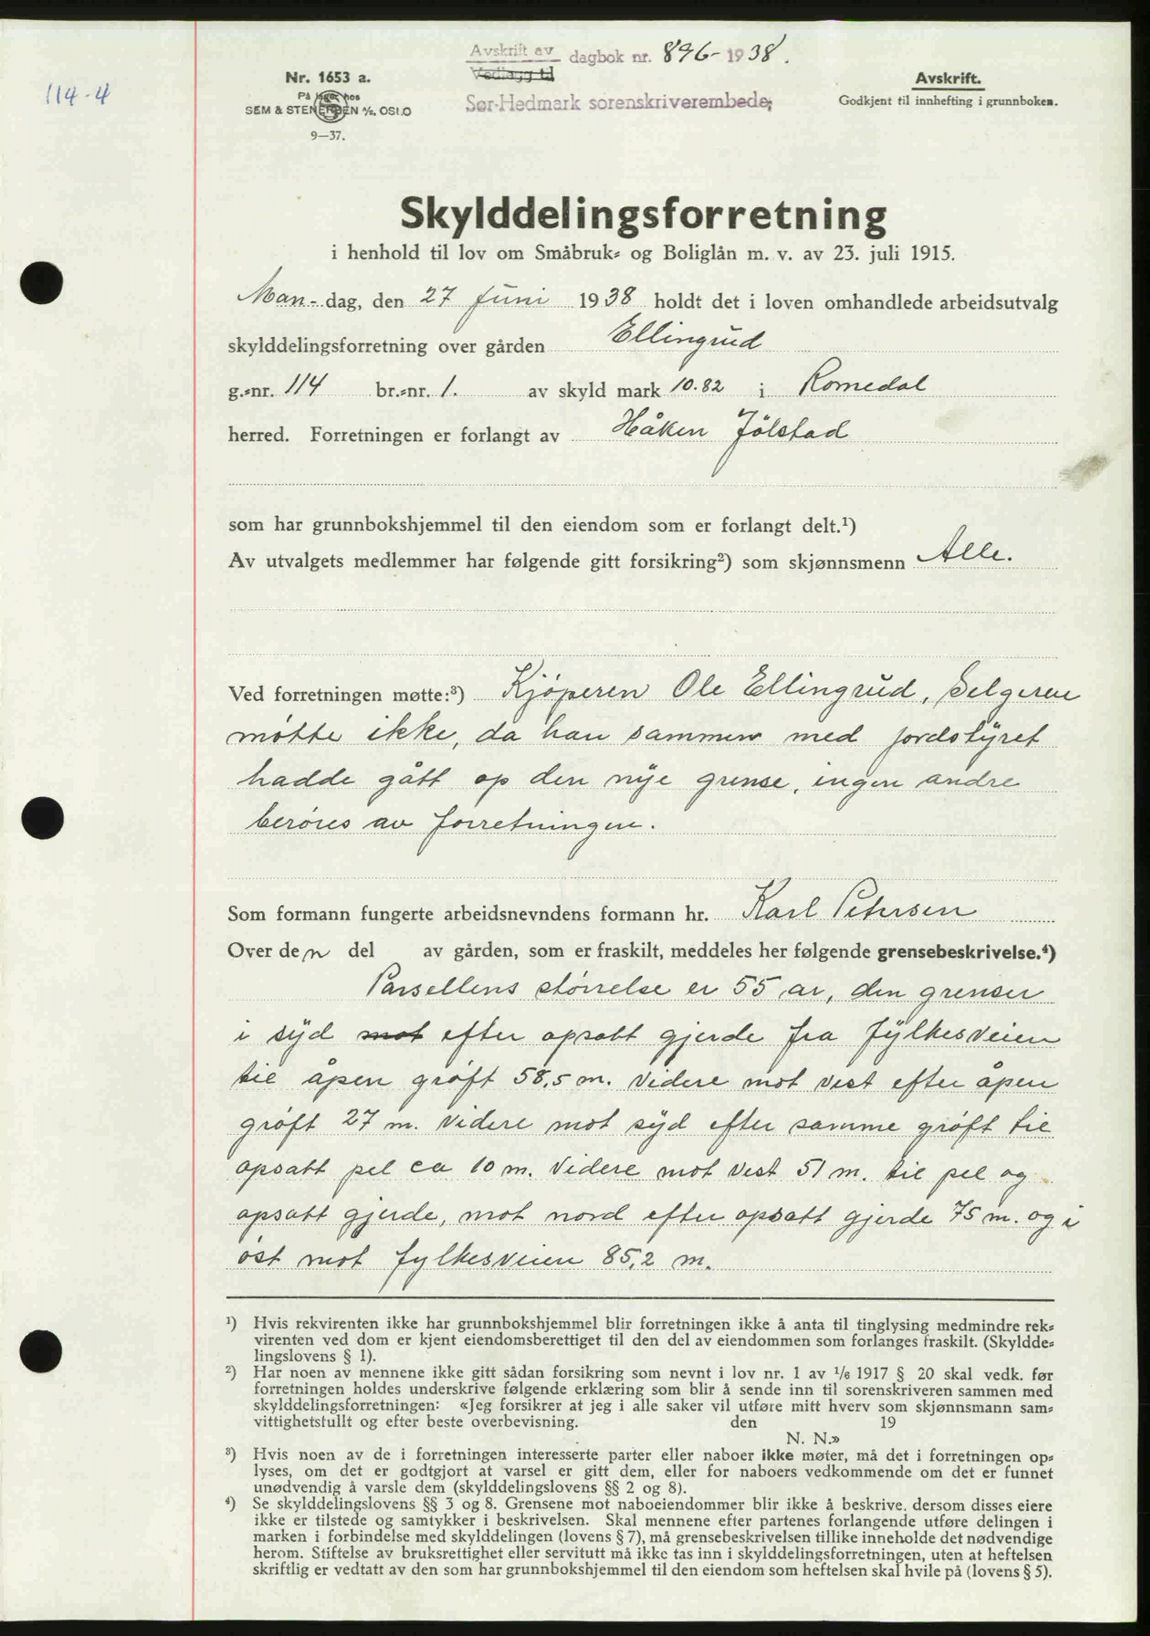 114-4
Nr. 1653 a.
På lager hos
SEM & STENERSEN A/S, OSLO
9—37.
Avskrift av
Vedlagg til
dagbok nr. 896-1938.
Sør-Hedmark sorenskriverembede;
Avskrift.
Godkjent til innhefting i grunnboken.
Skylddelingsforretning
i henhold til lov om Småbruk- og Boliglån m. v. av 23. juli 1915.
Man-dag, den 27 Juni 1938 holdt det i loven omhandlede arbeidsutvalg
skylddelingsforretning over gården Ellingrud
g.-nr. 114 br.-nr. 1. av skyld mark 10.82 i Romedal
herred. Forretningen er forlangt av Håken Jölstad
som har grunnbokshjemmel til den eiendom som er forlangt delt.¹)
Av utvalgets medlemmer har følgende gitt forsikring²) som skjønnsmenn Alle.
Ved forretningen møtte:³) Kjøperen Ole Ellingrud, Selgeren
møtte ikke, da han sammen med jordstyret
hadde gått op den nye grense, ingen andre
berøres av forretningen.
Som formann fungerte arbeidsnevndens formann hr. Karl Petersen
Over den del av gården, som er fraskilt, meddeles her følgende grensebeskrivelse.⁴)
Parsellens størrelse er 55 ar, den grenser
i syd mot efter opsatt gjerde fra fylkesveien
til åpen grøft 58,5 m. videre mot vest efter åpen
grøft 27 m. videre mot syd efter samme grøft til
opsatt pel ca 10 m. Videre mot vest 51 m. til pel og
opsatt gjerde, mot nord efter opsatt gjerde 75 m. og i
øst mot fylkesveien 85,2 m.
¹) Hvis rekvirenten ikke har grunnbokshjemmel blir forretningen ikke å anta til tinglysing medmindre rek-
virenten ved dom er kjent eiendomsberettiget til den del av eiendommen som forlanges fraskilt. (Skyldde-
lingslovens § 1).
²) Har noen av mennene ikke gitt sådan forsikring som nevnt i lov nr. 1 av 1/6 1917 § 20 skal vedk. før
forretningen holdes underskrive følgende erklæring som blir å sende inn til sorenskriveren sammen med
skylddelingsforretningen: «Jeg forsikrer at jeg i alle saker vil utføre mitt hverv som skjønnsmann sam-
vittighetsfullt og efter beste overbevisning. den 19
N. N.»
³) Hvis noen av de i forretningen interesserte parter eller naboer ikke møter, må det i forretningen op-
lyses, om det er godtgjort at varsel er gitt dem, eller for naboers vedkommende om det er funnet
unødvendig å varsle dem (skylddelingslovens §§ 2 og 8).
⁴) Se skylddelingslovens §§ 3 og 8. Grensene mot naboeiendommer blir ikke å beskrive, dersom disses eiere
ikke er tilstede og samtykker i beskrivelsen. Skal mennene efter partenes forlangende utføre delingen i
marken i forbindelse med skylddelingen (lovens § 7), må grensebeskrivelsen tillike inneholde det nødvendige
herom. Stiftelse av bruksrettighet eller servitutt må ikke tas inn i skylddelingsforretningen, uten at heftelsen
skriftlig er vedtatt av den som har grunnbokshjemmel til den eiendom som heftelsen skal hvile på (lovens § 5).